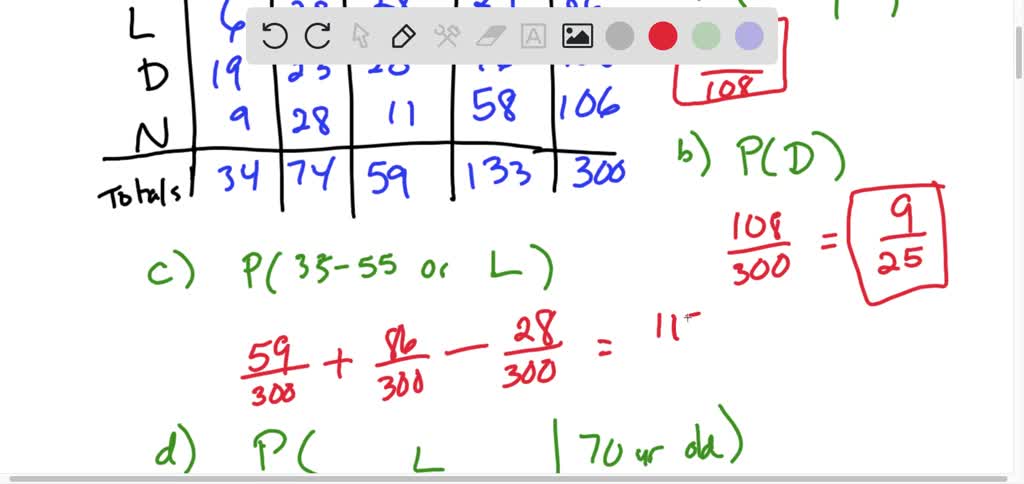 L 6
D 19
N 9 28 11 58 106
Totals 34 74 59 133 300
108
b) P(D)
108/300 = 9/25
c) P(35-55 or L)
59/300 + 86/300 - 28/300 = 11
d) P( L | 70 yr old)